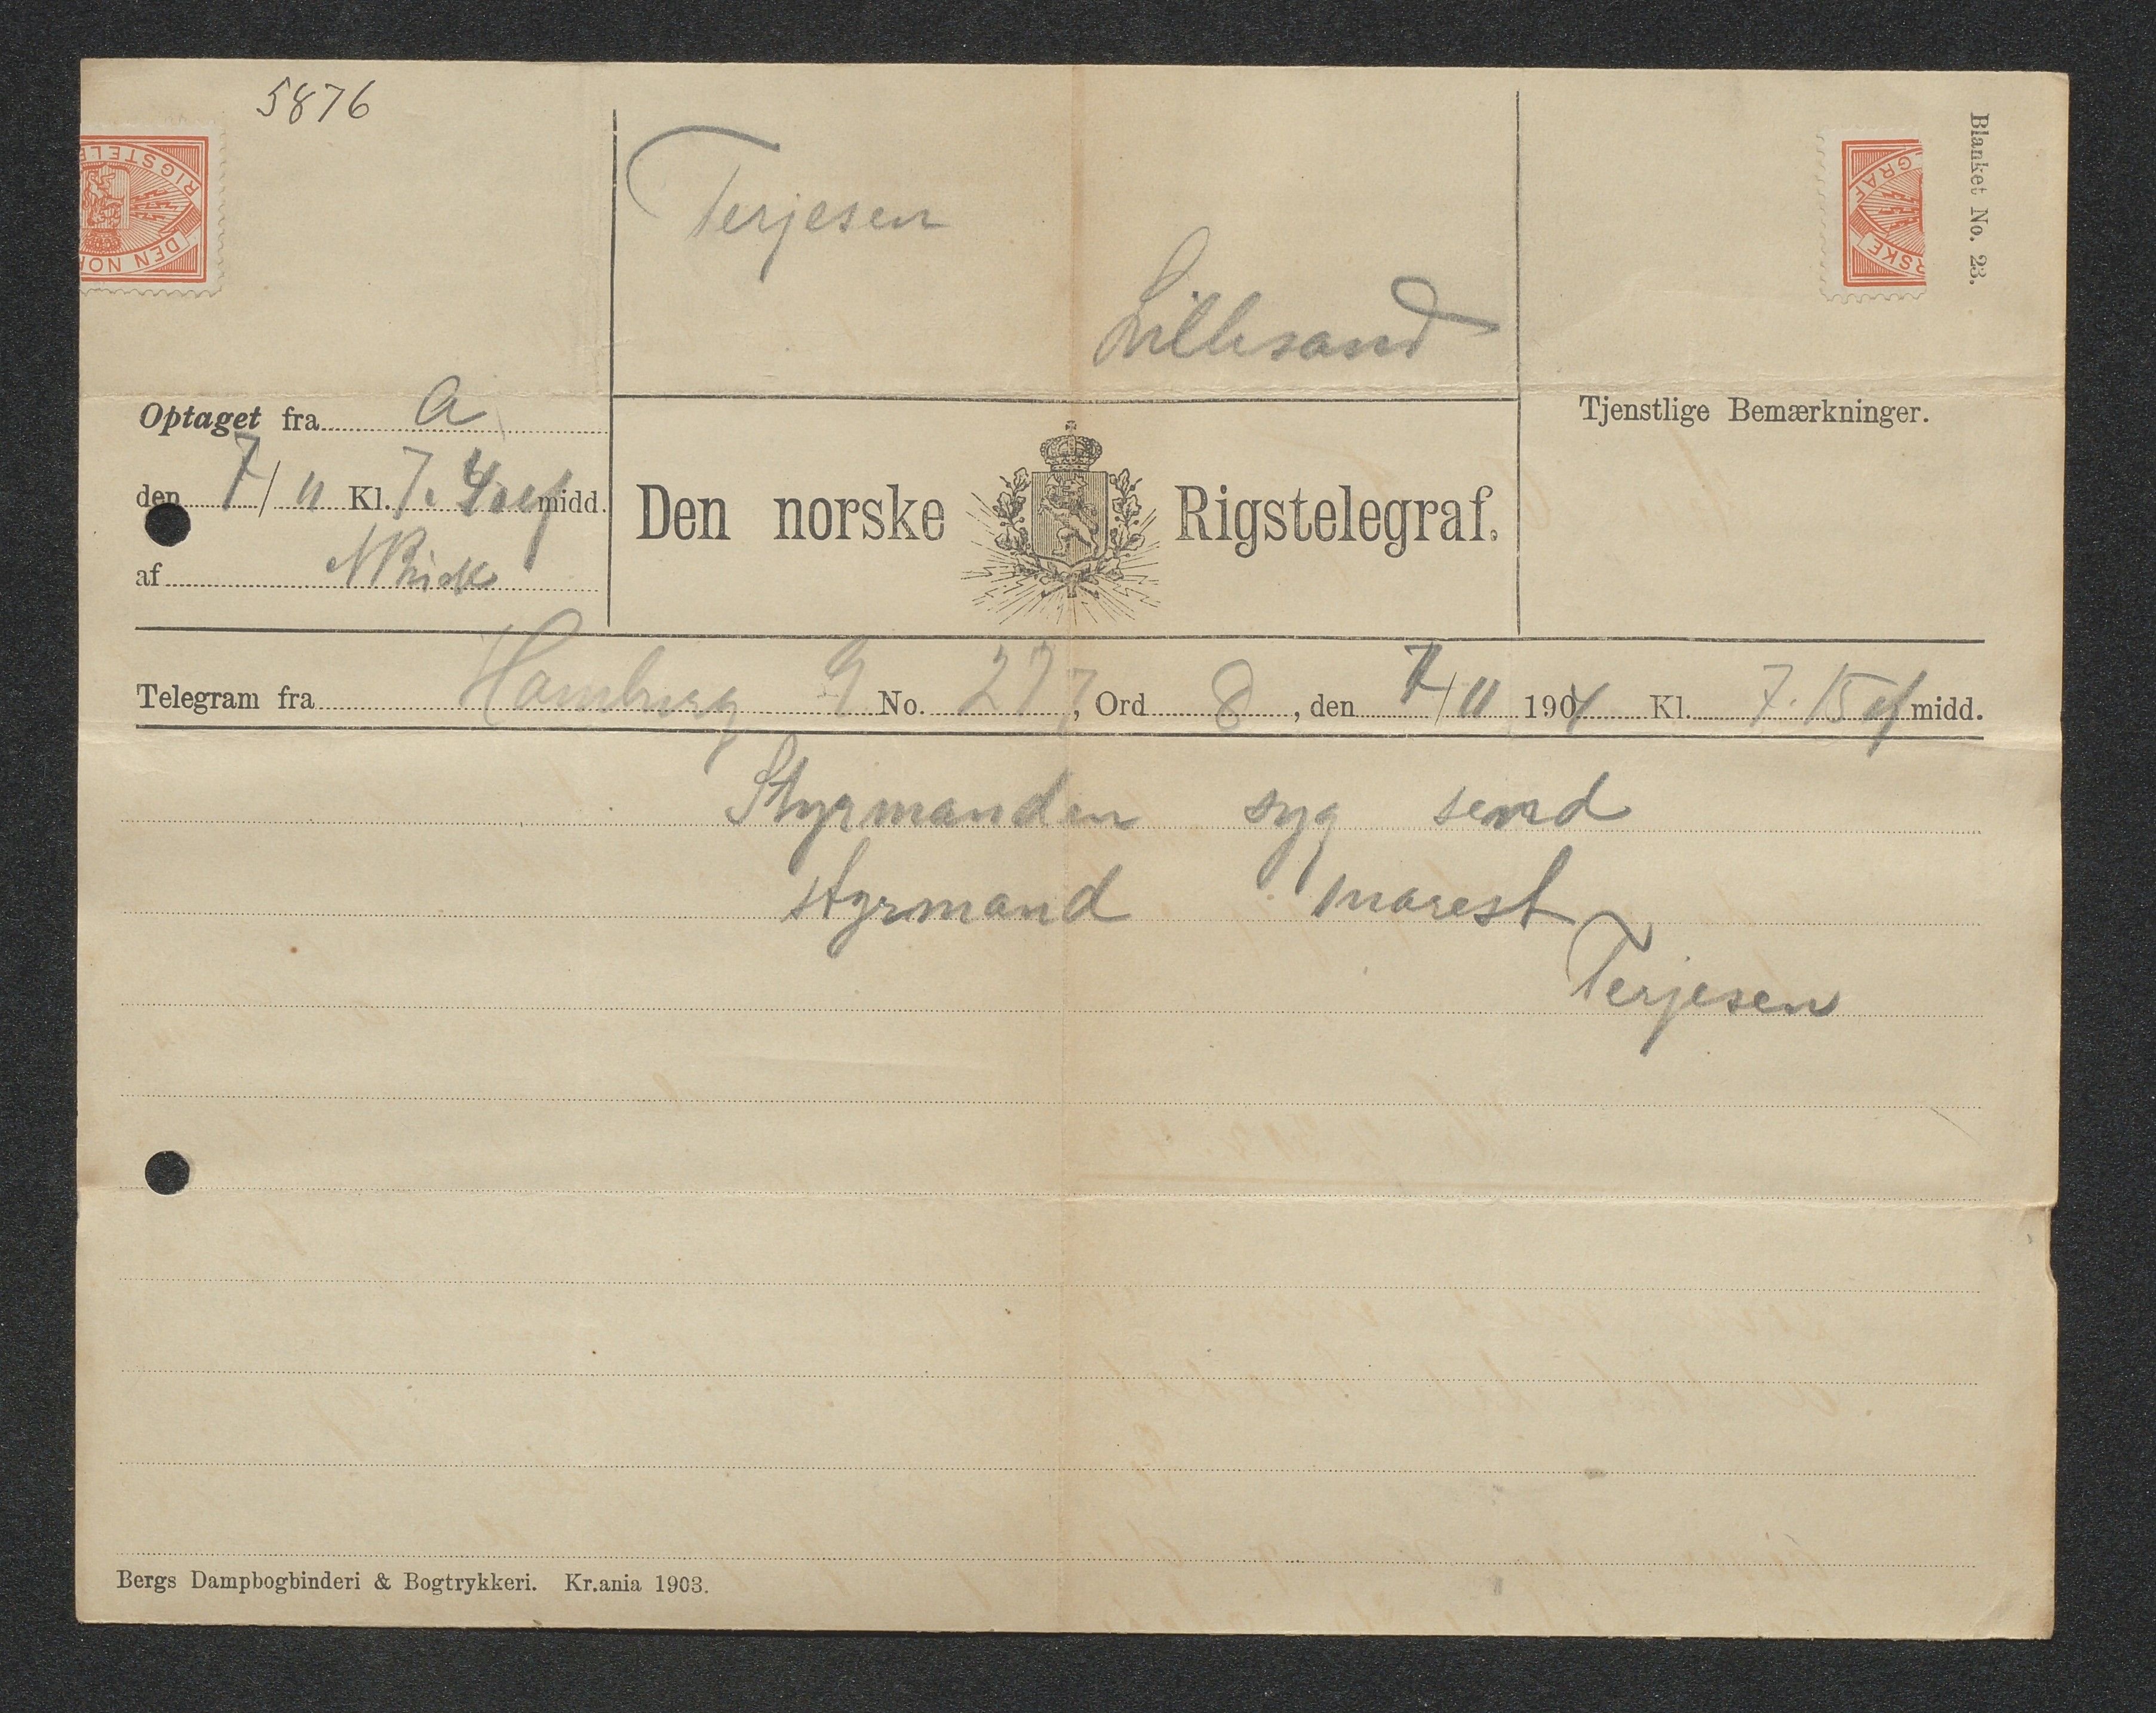 5876
Blanket No. 23.
RIGSTELE
DEN NOR
GRAF
RSKE
Terjesen
Lillesand
Optaget fra a
den 7/11 Kl. 7.4 ef midd.
af
Den norske Rigstelegraf.
Tjenstlige Bemærkninger.
Telegram fra Hamburg 9 No. 277, Ord 8, den 7/11 1904 Kl. 7.15 ef midd.
Styrmanden syg send
styrmand snarest
Terjesen
Bergs Dampbogbinderi & Bogtrykkeri. Kr.ania 1903.